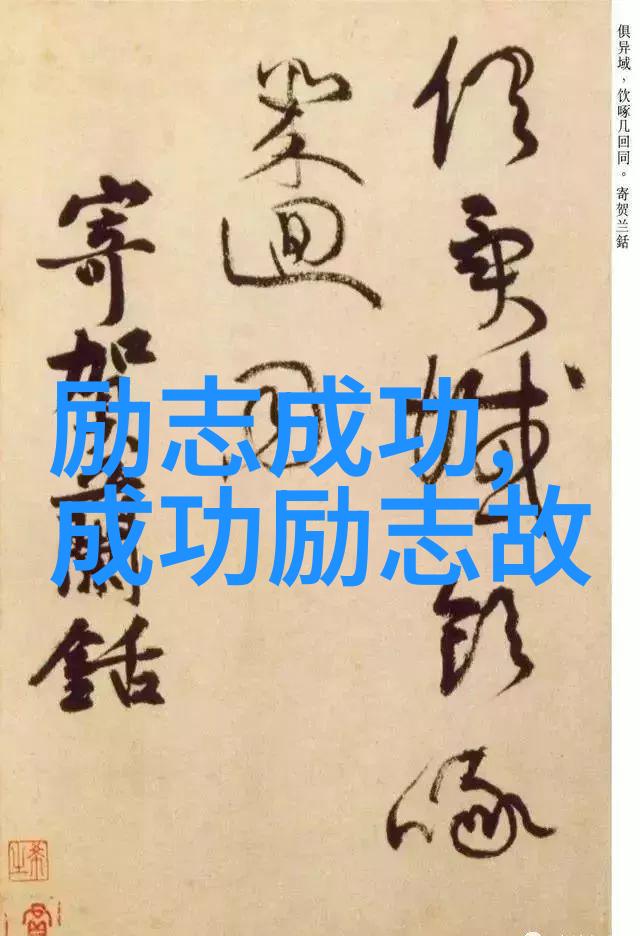 俱异域，饮啄几回同。寄贺兰銛
俱異域飲啄
幾迴同
寄賀蘭銛
励志成功,
成功励志故